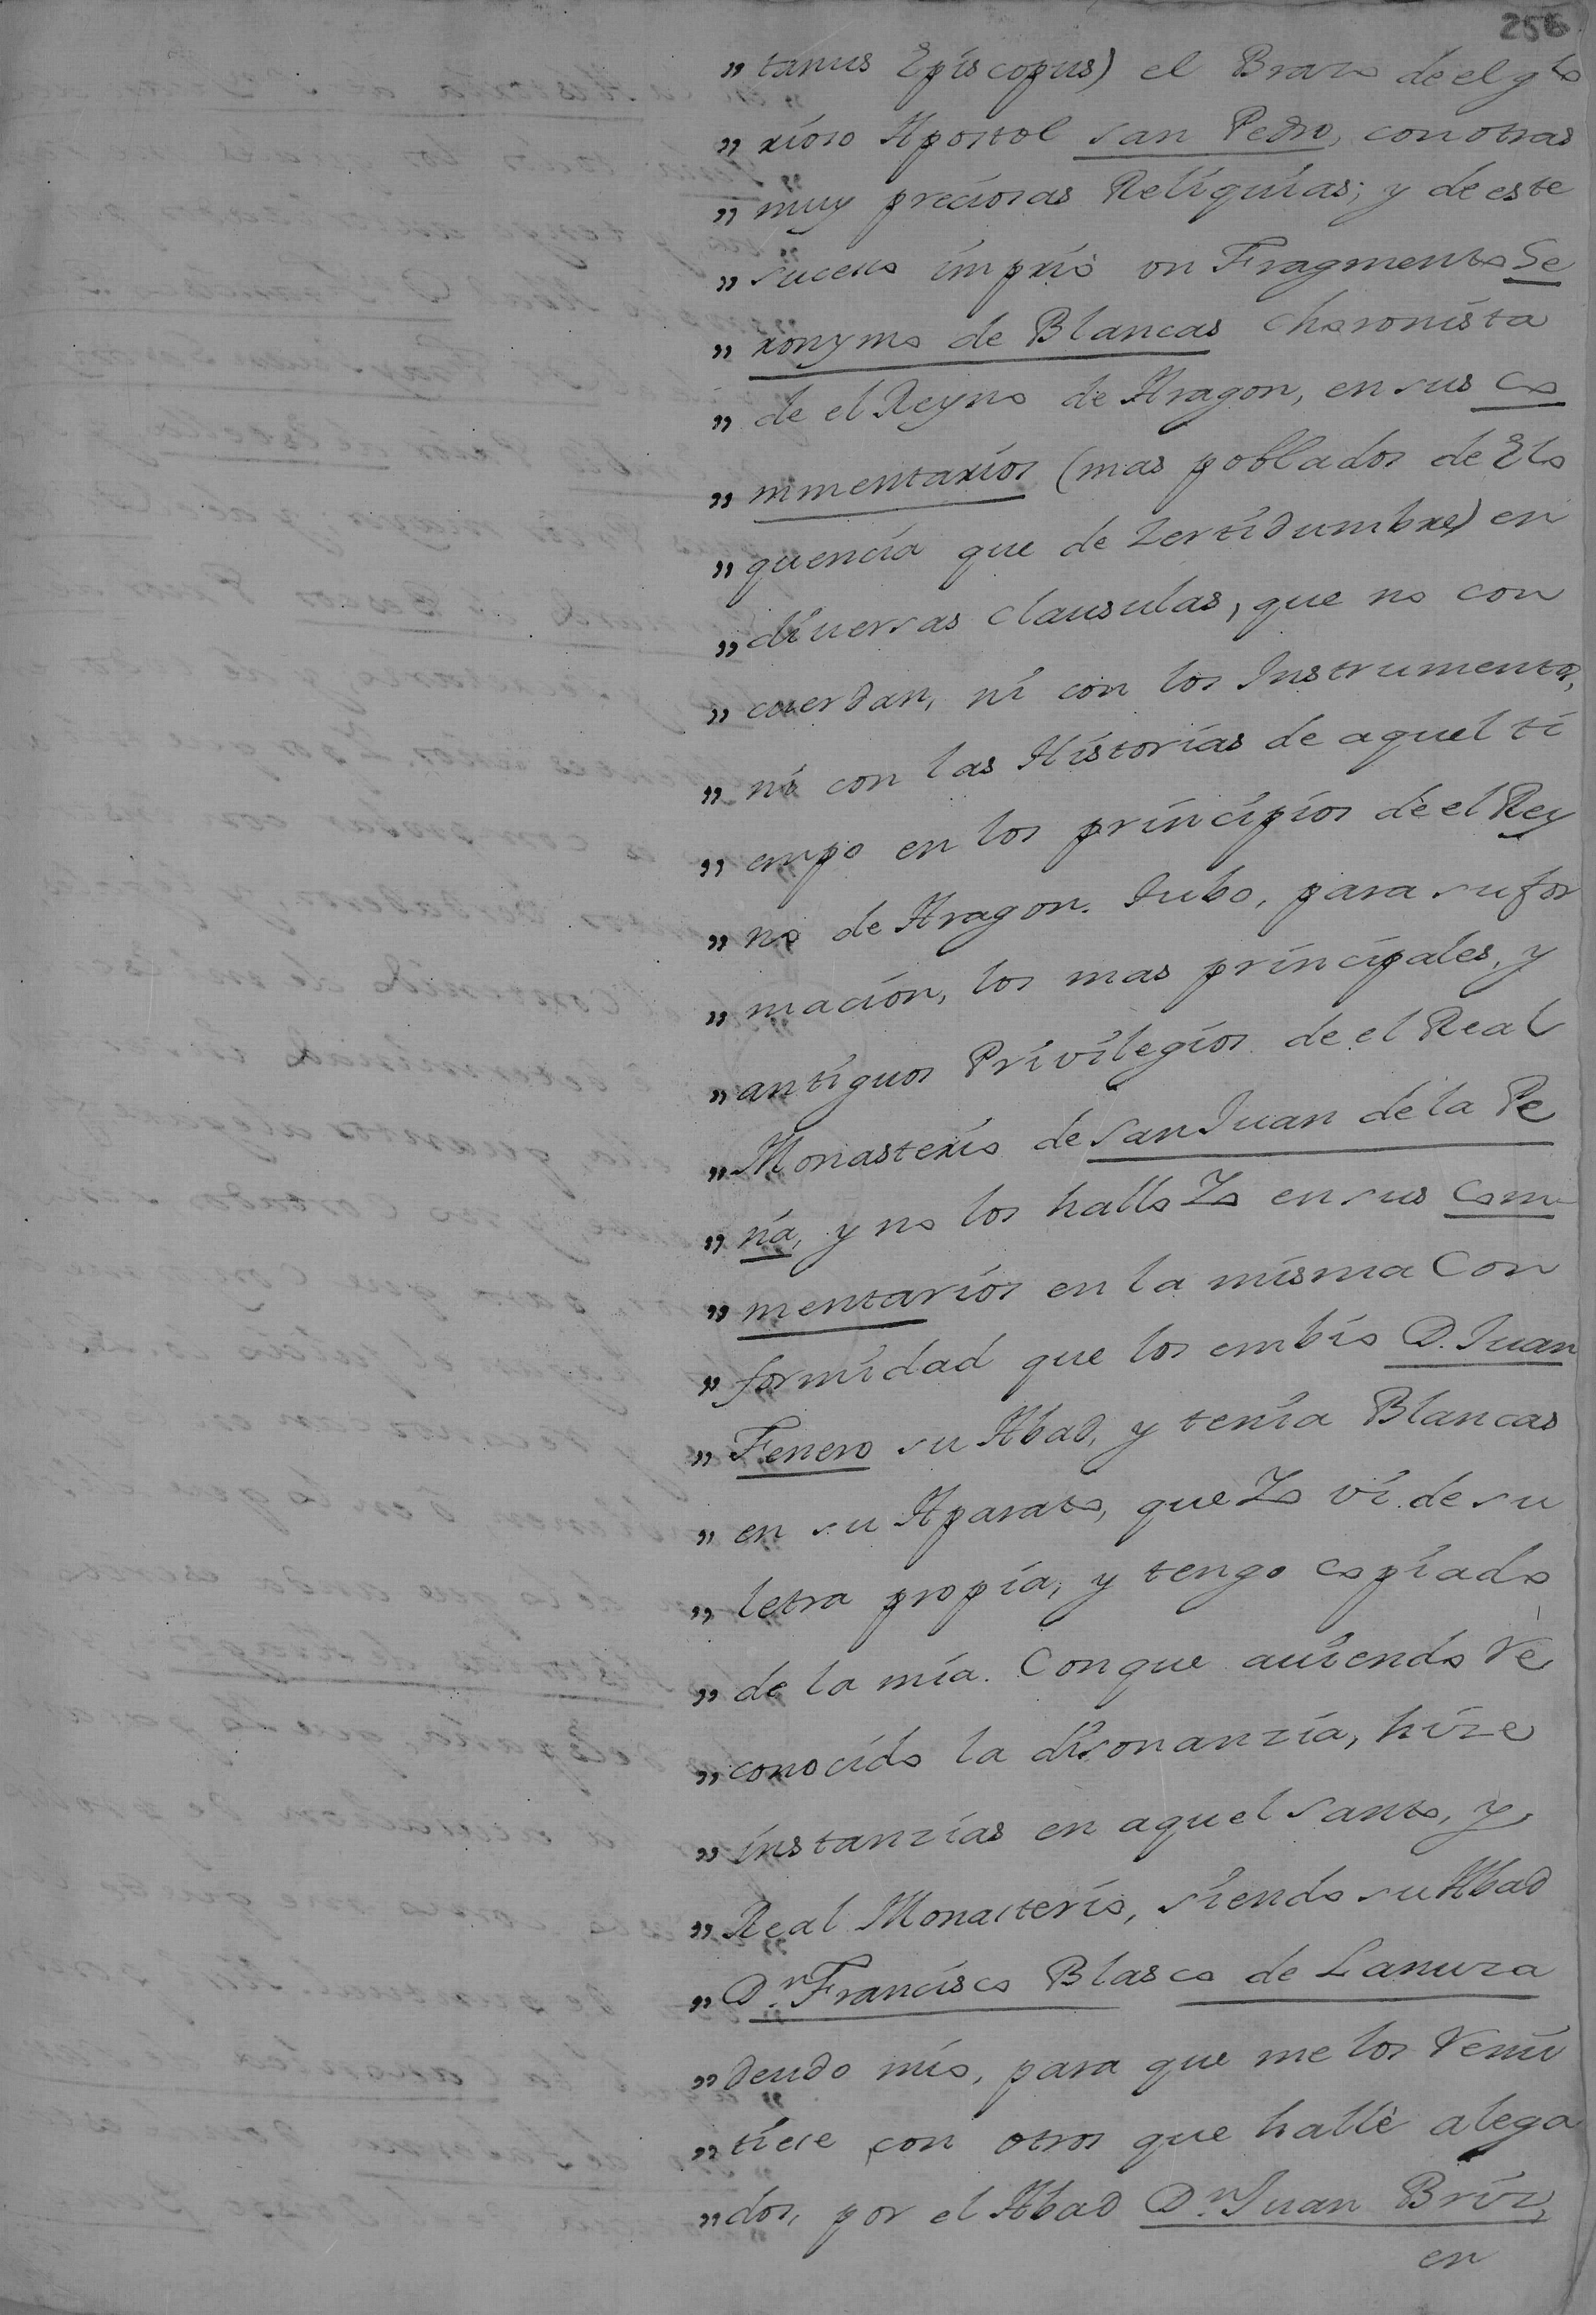 256
„ tanus Episcopus) el Brazo de el glo
„ rioso Apostol san Pedro, con otras
„ muy preciosas Reliquias; y de este
„ suceso imprio un Fragmento Ge
„ ronymo de Blancas Choronista
„ de el Reyno de Aragon, en sus Co
„ mmentarios (mas poblados de Elo
„ quencia que de Zertidumbre) en
„ diuersas clausulas, que no con
„ cuerdan, ni con los Instrumentos,
„ ni con las Historias de aquel ti
„ empo en los principios de el Rey
„ no de Aragon. Tubo, para su for
„ macion, los mas principales, y
„ antiguos Privilegios de el Real
„ Monasterio de san Juan de la Pe
„ ña, y no los hallo Yo en sus Com
„ mentarios en la misma Con
„ formidad que los embio D. Juan
„ Fenero su Abad, y tenia Blancas
„ en su Aparato, que Yo vi de su
„ letra propia, y tengo copiado
„ de la mia. Con que auiendo Re
„ conocido la disonanzia, hize
„ instanzias en aquel santo, y
„ Real Monasterio, siendo su Abad
„ Dn. Francisco Blasco de Lanuza
„ deudo mio, para que me los Remi
„ tiese con otros que hallè alega
„ dos, por el Abad Dn. Juan Briz,
en